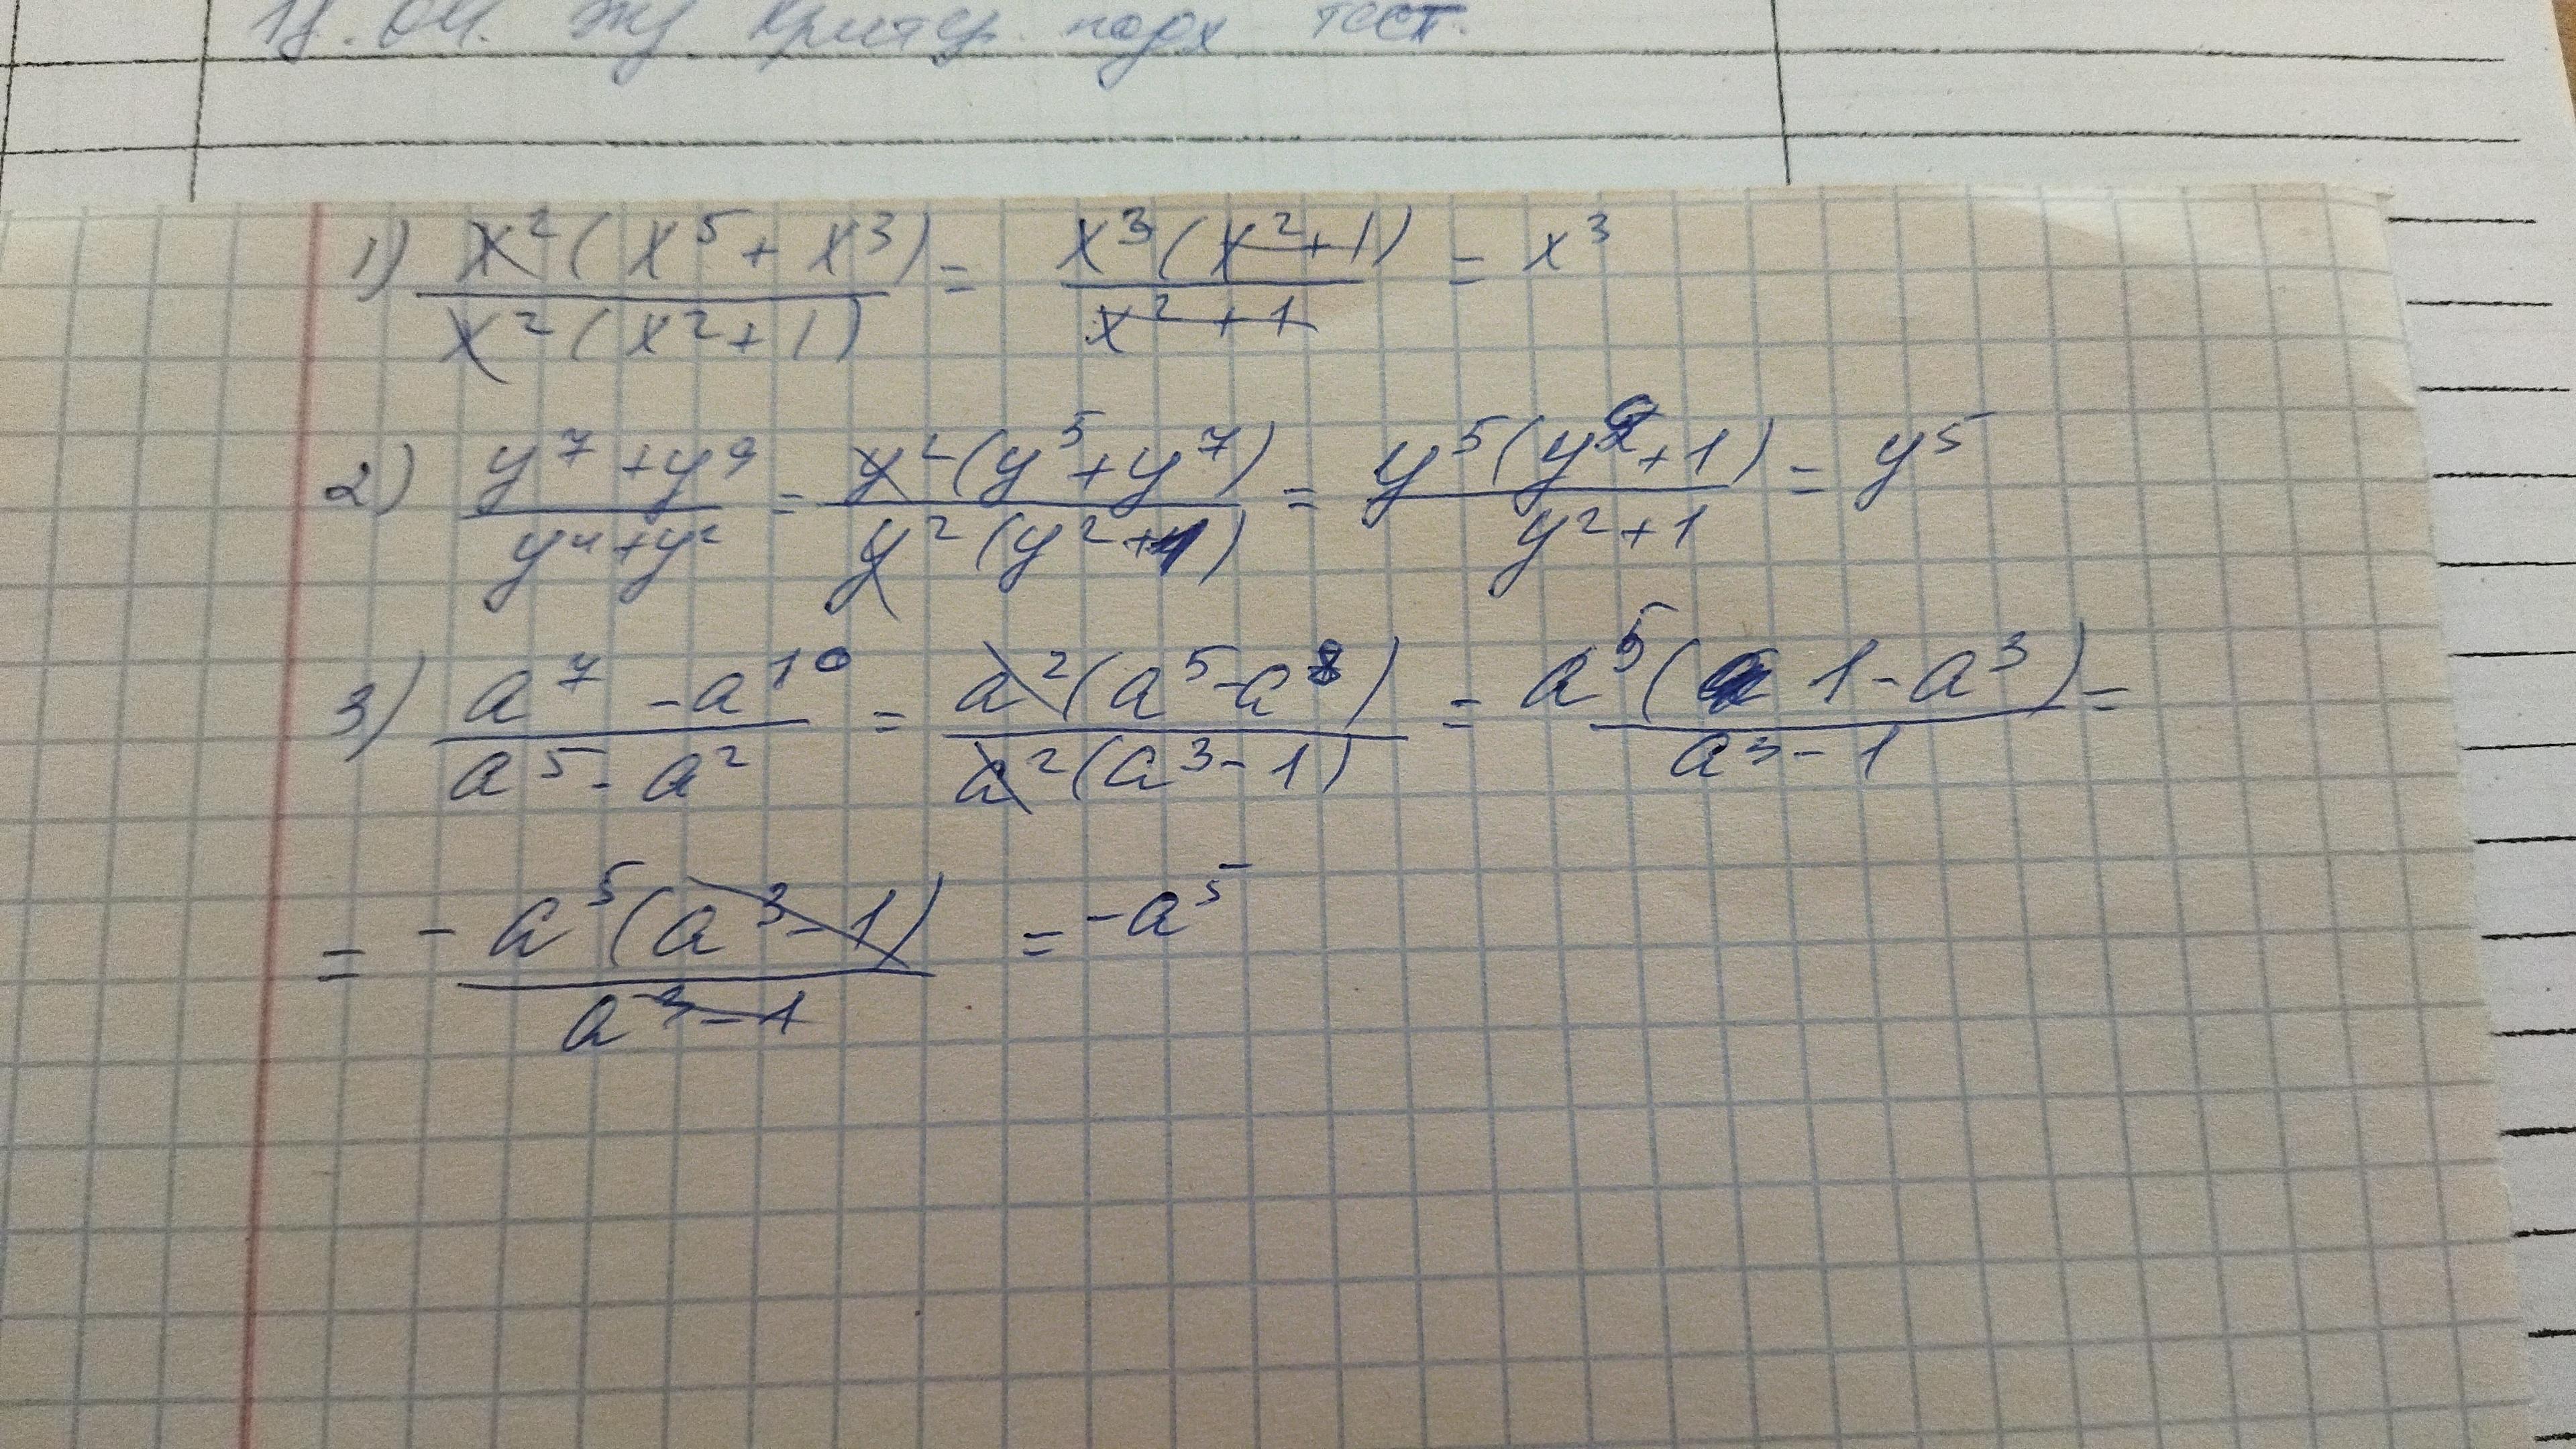 тест.
1) x²(x⁵+x³) / x²(x²+1) = x³(x²+1) / x²+1 = x³
2) y⁷+y⁹ / y⁴+y² = y²(y⁵+y⁷) / y²(y²+1) = y⁵(y²+1) / y²+1 = y⁵
3) a⁷-a¹⁰ / a⁵-a² = a²(a⁵-a⁸) / a²(a³-1) = a⁵(1-a³) / a³-1 =
= -a⁵(a³-1) / a³-1 = -a⁵